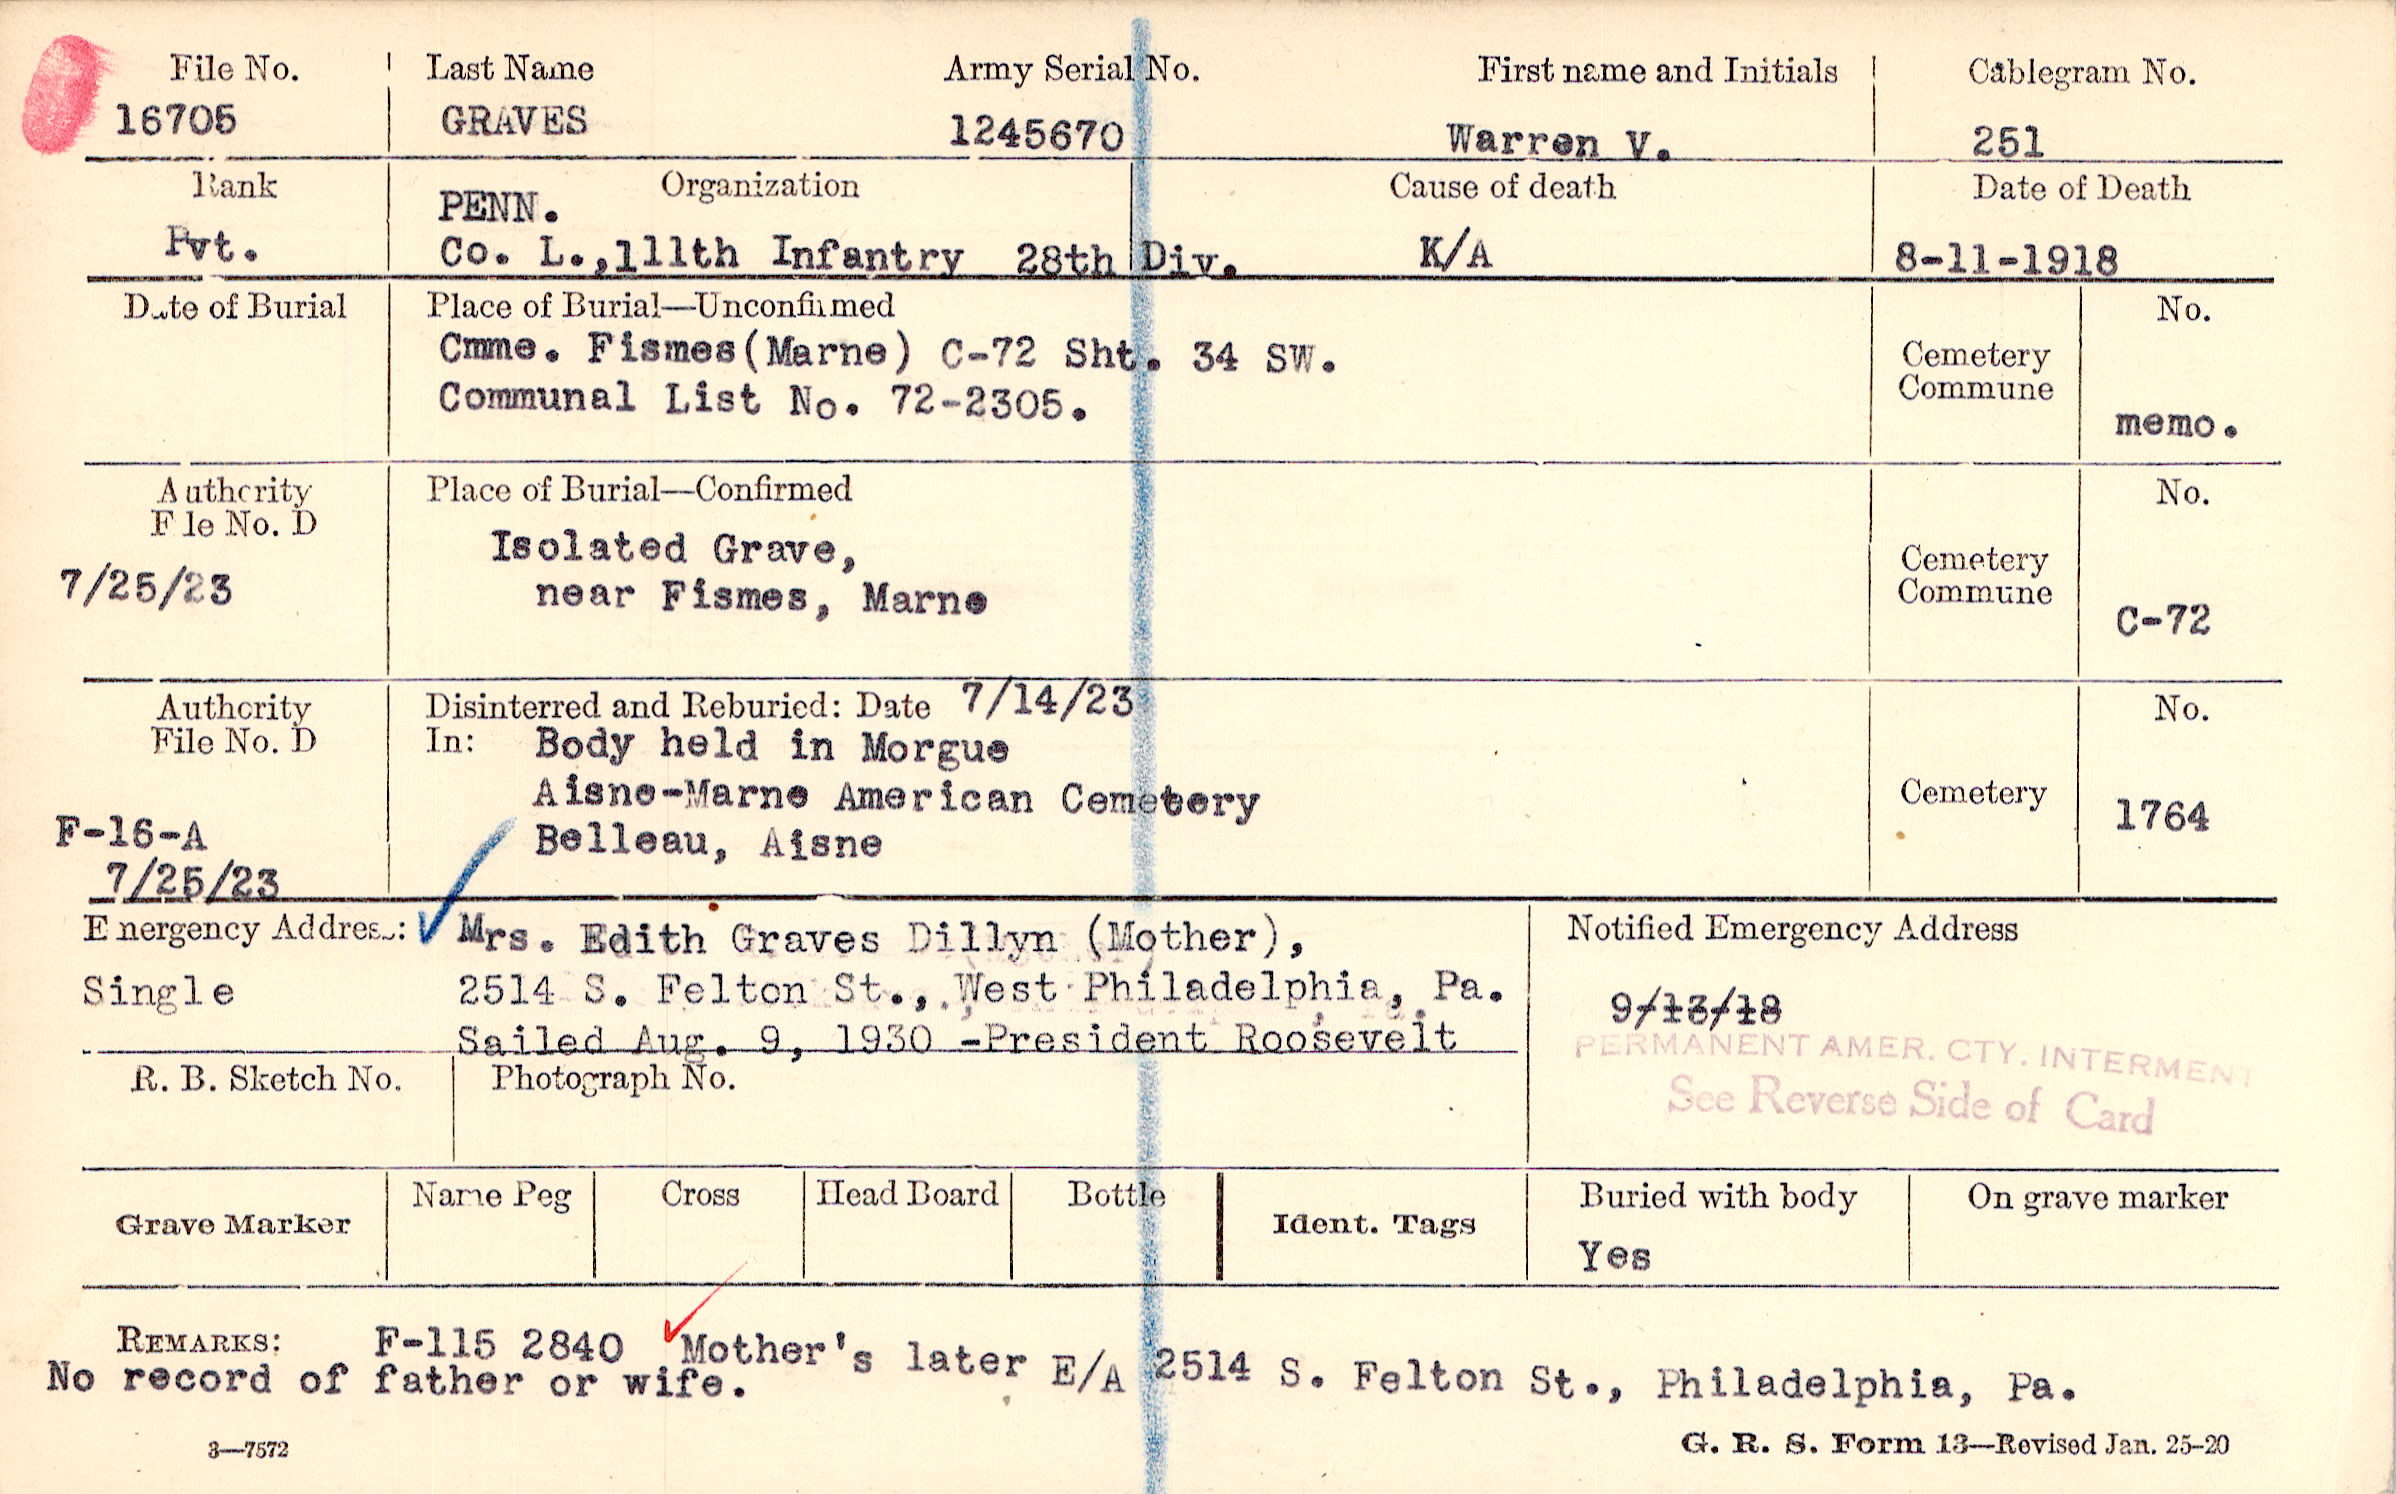 File No. Last Name Army Serial No. First name and Initials Cablegram No.
16705 GRAVES 1245670 Warren V. 251
Rank Organization Cause of death Date of Death
PENN.
Pvt. Co. L.,111th Infantry 28th Div. K/A 8-11-1918
Date of Burial Place of Burial—Unconfirmed No.
Cmne. Fismes(Marne) C-72 Sht. 34 SW. Cemetery
Communal List No. 72-2305. Commune
memo.
Authority Place of Burial—Confirmed No.
File No. D
Isolated Grave, Cemetery
7/25/23 near Fismes, Marne Commune
C-72
Authority Disinterred and Reburied: Date 7/14/23 No.
File No. D In: Body held in Morgue
Aisne-Marne American Cemetery Cemetery 1764
F-16-A Belleau, Aisne
7/25/23
Emergency Address: Mrs. Edith Graves Dillyn (Mother), Notified Emergency Address
Single 2514 S. Felton St., West Philadelphia, Pa. 9/13/18
Sailed Aug. 9, 1930 -President Roosevelt PERMANENT AMER. CTY. INTERMENT
R. B. Sketch No. Photograph No. See Reverse Side of Card
Grave Marker Name Peg Cross Head Board Bottle Ident. Tags Buried with body On grave marker
Yes
REMARKS: F-115 2840 Mother's later E/A 2514 S. Felton St., Philadelphia, Pa.
No record of father or wife.
3—7572 G. R. S. Form 13—Revised Jan. 25-20